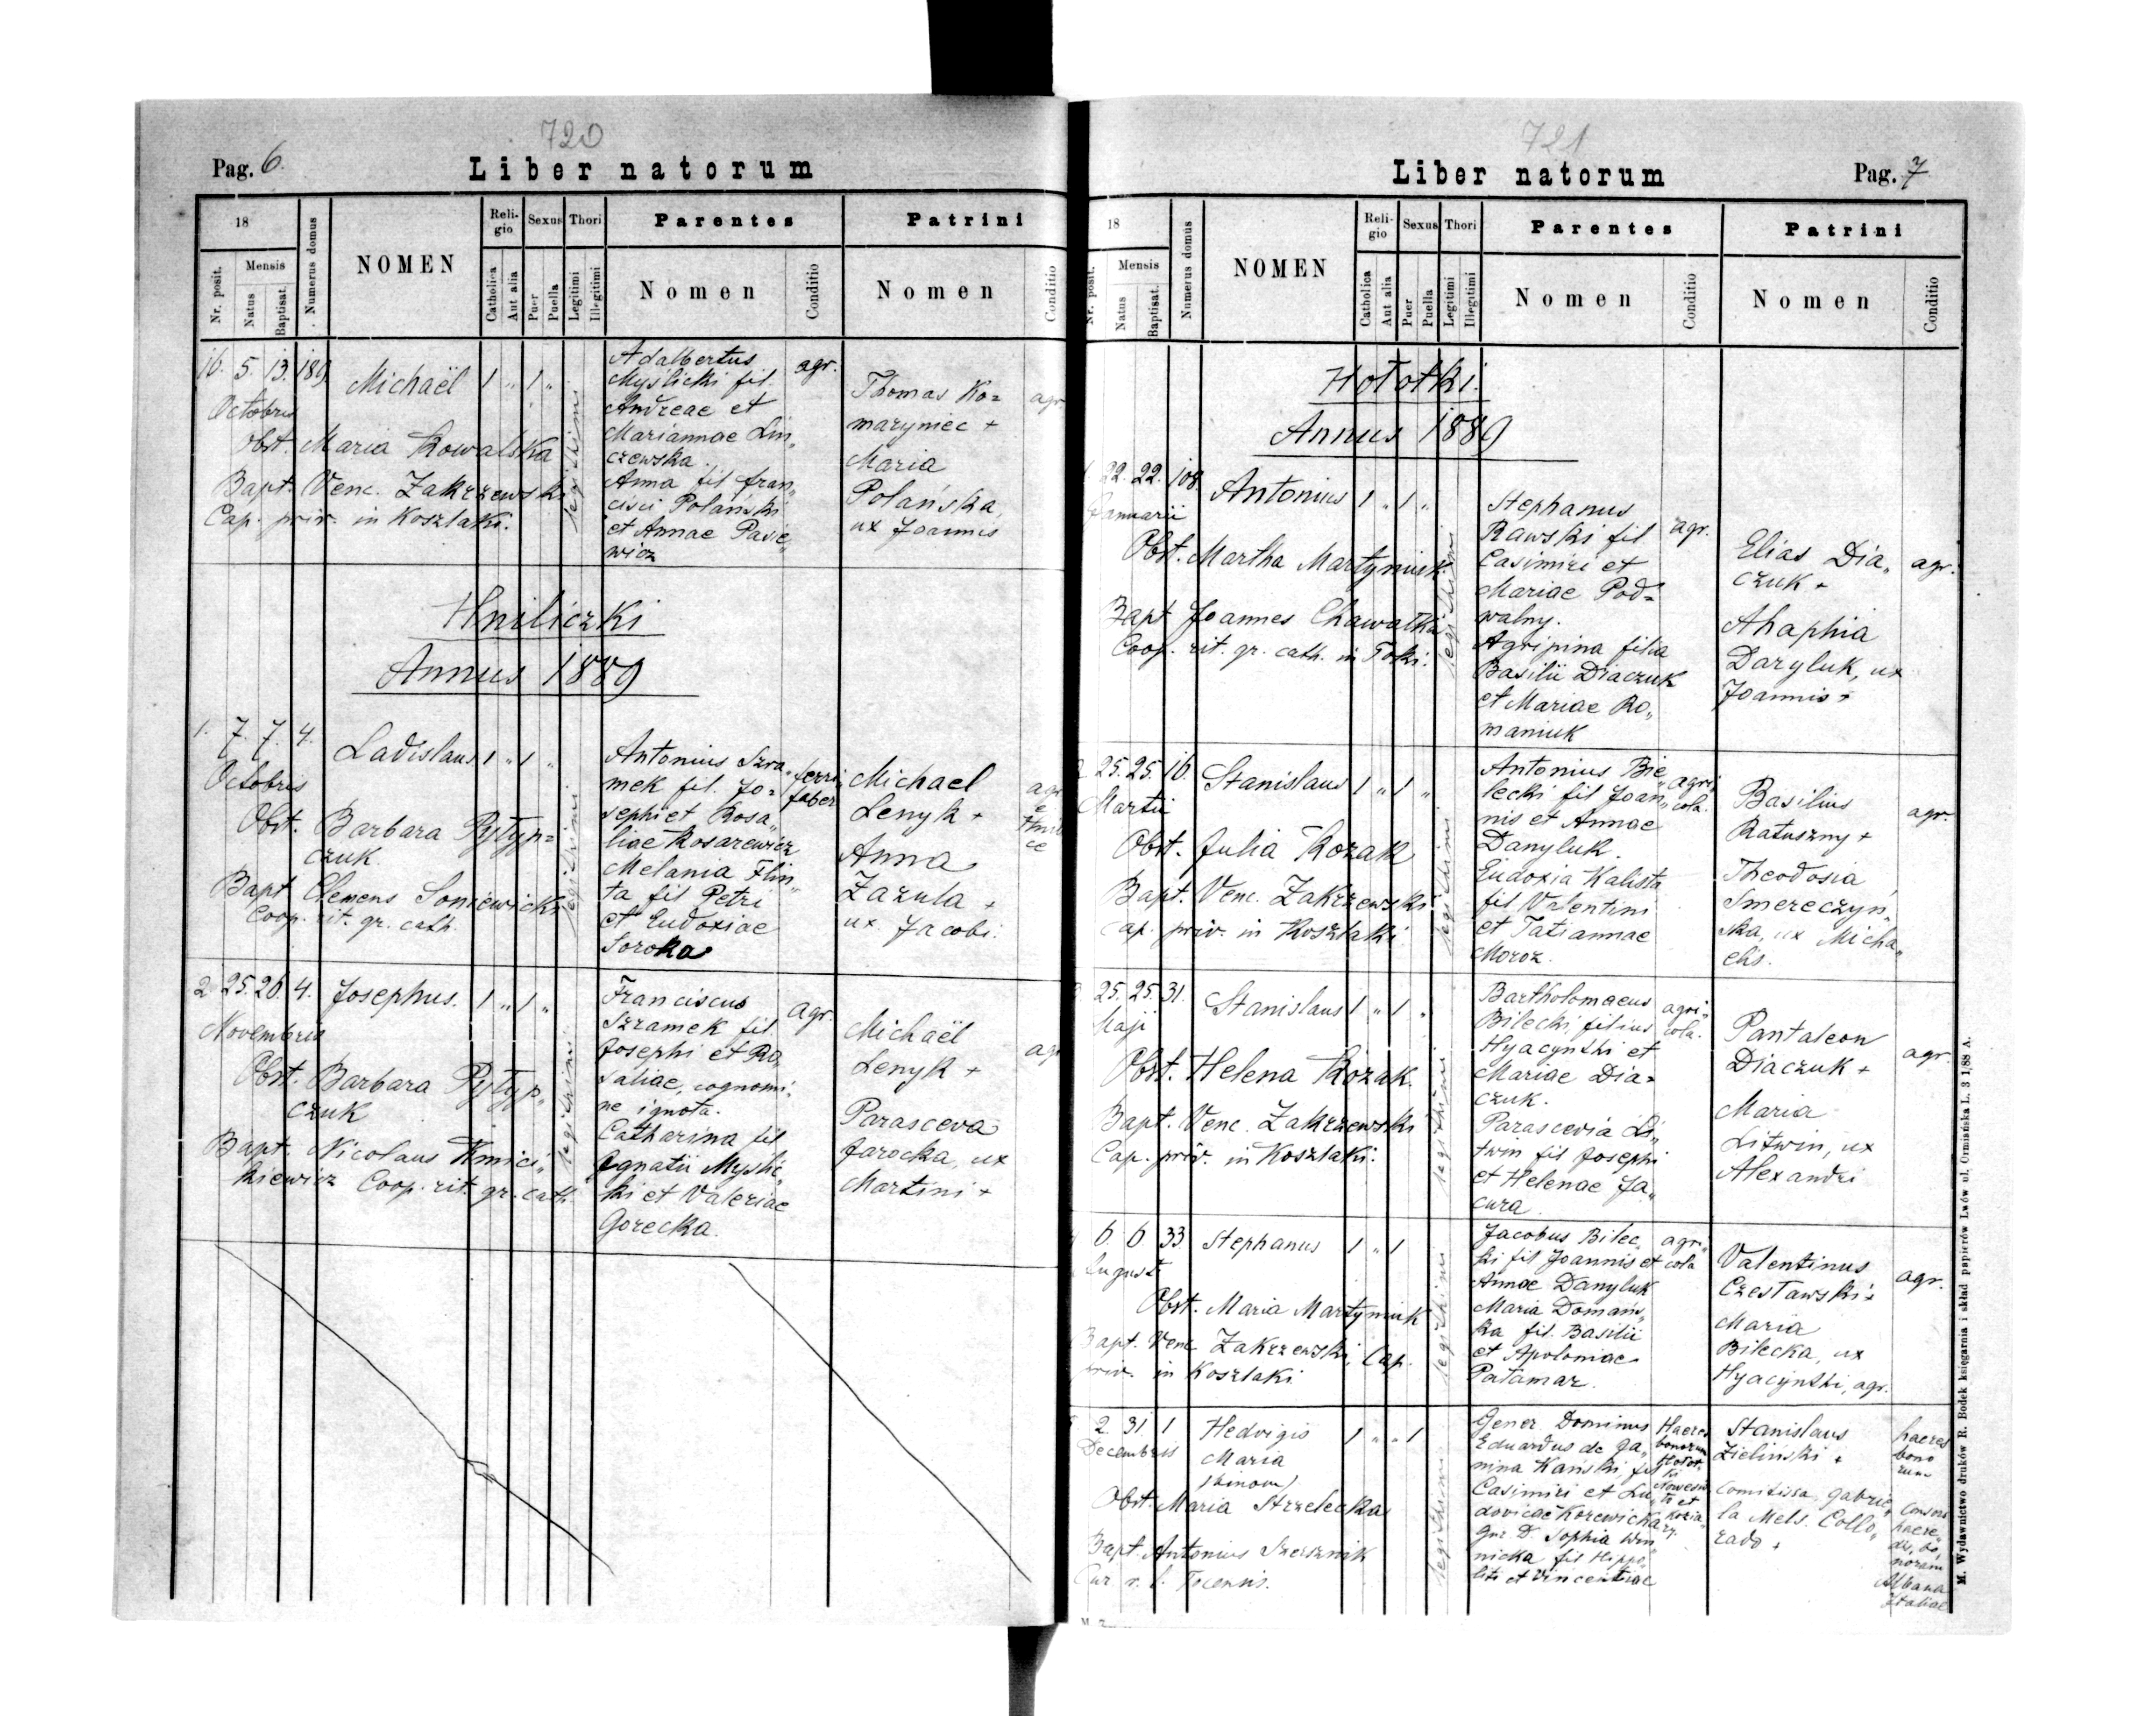 720
Pag. 6.
Liber natorum
18
Nr. posit.
Mensis
Natus
Baptisat.
Numerus domus
NOMEN
Religio
Catholica
Aut alia
Sexus
Puer
Puella
Thori
Legitimi
Illegitimi
Parentes
Nomen
Conditio
Patrini
Nomen
Conditio
16. 5. 13. 189.
Octobris
Michaël 1 " 1 "
Obst. Maria Kowalska
Bapt. Venc. Zakrzewski
Cap. priv. in Koszlaki.
legitimi
Adalbertus
Myslicki fil.
Andreae et
Mariannae Lin„
czewska.
Anna fil Fran„
cisci Polański
et Annae Pasie„
wicz
agr.
Thomas Ko=
maryniec +
Maria
Polańska,
ux Joannis
agr
Hniliczki
Annus 1889
1. 7. 7. 4.
Octobris
Ladislaus 1 " 1 "
Obst. Barbara Pytyp=
czuk
Bapt Clemens Soniewicki
Coop. rit. gr. cath.
legitimi
Antonius Szra„
mek fil. Jo=
sephi et Rosa„
liae Kosarewicz
Melania Flin„
ta fil Petri
et Eudoxiae
Soroka
ferri
faber
Michael
Lenyk +
Anna
Zazula +
ux. Jacobi.
2 25. 26. 4.
Novembris
Josephus. 1 " 1 "
Obst. Barbara Pytyp„
czuk
Bapt. Nicolaus Kmici„
kiewicz Coop. rit. gr. cath.
legitimi
Franciscus
Szramek fil.
Josephi et Ro„
saliae, cognomi„
ne ignota.
Catharina fil
Ignatii Myslic„
ki et Valeriae
Gorecka.
agr.
Michaël
Lenyk +
Parasceva
Jarocka, ux
Martini +
agr
721
Liber natorum
Pag. 7
18
Nr. posit.
Mensis
Natus
Baptisat.
Numerus domus
NOMEN
Religio
Catholica
Aut alia
Sexus
Puer
Puella
Thori
Legitimi
Illegitimi
Parentes
Nomen
Conditio
Patrini
Nomen
Conditio
Hołotki.
Annus 1889
22. 22. 108.
Januarii
Antonius 1 " 1 "
Obst. Martha Martyniuk
Bapt Joannes Chawałka
Coop. rit. gr. cath. in Toki.
legitimi
Stephanus
Rawski fil
Casimiri et
Mariae Pod=
walny.
Agripina filia
Basilii Diaczuk
et Mariae Ro„
maniuk
agr.
Elias Dia„
czuk +
Ahaphia
Daryluk, ux
Joannis +
agr.
25. 25. 16.
Martii
Stanislaus 1 " 1 "
Obst. Julia Kozak
Bapt. Venc. Zakrzewski
Cap. priv. in Koszlaki
legitimi
Antonius Bie„
lecki fil Joan„
nis et Annae
Danyluk.
Eudoxia Kalista
fil Valentini
et Tatiannae
Moroz.
agri„
cola.
Basilius
Ratuszny +
Theodosia
Smereczyń„
ska, ux Micha„
elis.
agr.
25. 25. 31.
Maji
Stanislaus 1 " 1 "
Obst. Helena Kozak.
Bapt. Venc. Zakrzewski
Cap. priv. in Koszlaki.
legitimi
Bartholomaeus
Bilecki filius
Hyacynthi et
Mariae Dia=
czuk.
Parascevia Li„
twin fil Josephi
et Helenae Ja„
cura
agri„
cola.
Pantaleon
Diaczuk +
Maria
Litwin, ux
Alexandri
agr.
6 6 33
August.
Stephanus 1 " 1
Obst. Maria Martyniuk
Bapt. Venc Zakrzewski, Cap.
priv. in Koszlaki.
legitimi
Jacobus Bilec„
ki fil Joannis et
Annae Danyluk
Maria Domańs„
ka fil. Basilii
et Apoloniae
Patamar.
agri„
cola
Valentinus
Czesławski +
Maria
Bilecka, ux
Hyacynthi, agr.
agr.
2. 31. 1
Decembris
Hedvigis 1 " " 1
Maria
(binom)
Obst. Maria Strzelecka
Bapt. Antonius
legitimi
Gener. Dominus
Eduardus de Ja„
nina Kański, fil
Casimiri et Lu„
dovicae Korewicka
Gnr D. Sophia
nicka fil Hippo„
liti et Vincentiae
Haeres
bonorum
Hołot„
ki
Stanislaus
Zieliński +
Comitissa Gabrie„
la Mels. Collo„
redo +
haeres
bono
rum
consors
haere„
dis, bo„
norum
Albana
Italiae
M. Wydawnictwo druków R. Bodek księgarnia i skład papierów Lwów ul. Ormiańska L. 3 1/88 A.